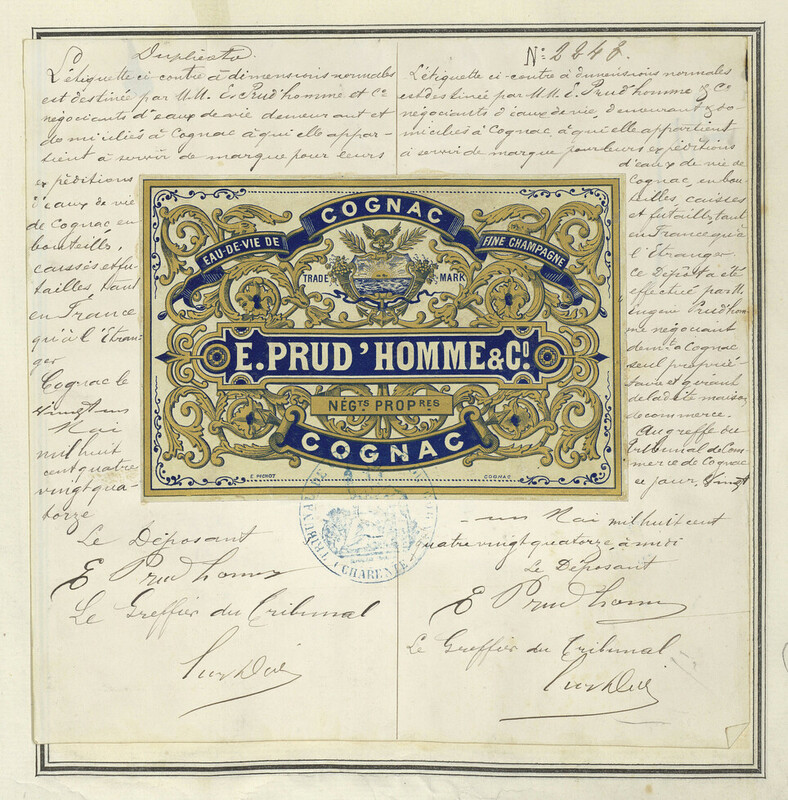 Duplicata
L'étiquette ci-contre à dimensions normales
est destinée par M.M. E. Prud'homme et Cie
négociants d'eaux de vie demeurant et
domiciliés à Cognac à qui elle appar-
tient à servir de marque pour leurs
expéditions
d'eaux de vie
de Cognac, en
bouteilles,
caisses et fu-
tailles tant
en France
qu'à l'Etran-
ger
Cognac le
vingt un
Mai
mil huit
cent quatre
vingt qua-
torze
Le Déposant
E Prud'homme
Le Greffier du Tribunal
No 2248.
L'étiquette ci-contre à dimensions normales
est destinée par M.M. E. Prud'homme & Co
négociants d'eaux de vie, demeurant & do-
miciliés à Cognac, à qui elle appartient
à servir de marque pour leurs expéditions
d'eaux de vie de
Cognac, en bou-
teilles, caisses
et futailles, tant
en France qu'à
l'Etranger.
Ce Dépôt a été
effectué par M.
Eugène Prud'hom-
me négociant
demt. à Cognac
seul proprié-
taire et gérant
de la dite maison
de commerce.
Au greffe du
tribunal de Com-
merce de Cognac
ce jour, vingt
-un Mai mil huit cent
quatre vingt quatorze, à midi
Le Déposant
E Prud'homme
Le Greffier du Tribunal
COGNAC
EAU-DE-VIE DE
FINE CHAMPAGNE
TRADE MARK
E. PRUD'HOMME & Co.
NÉGTS PROPRES
COGNAC
E. PICHOT
COGNAC
CHARENTE